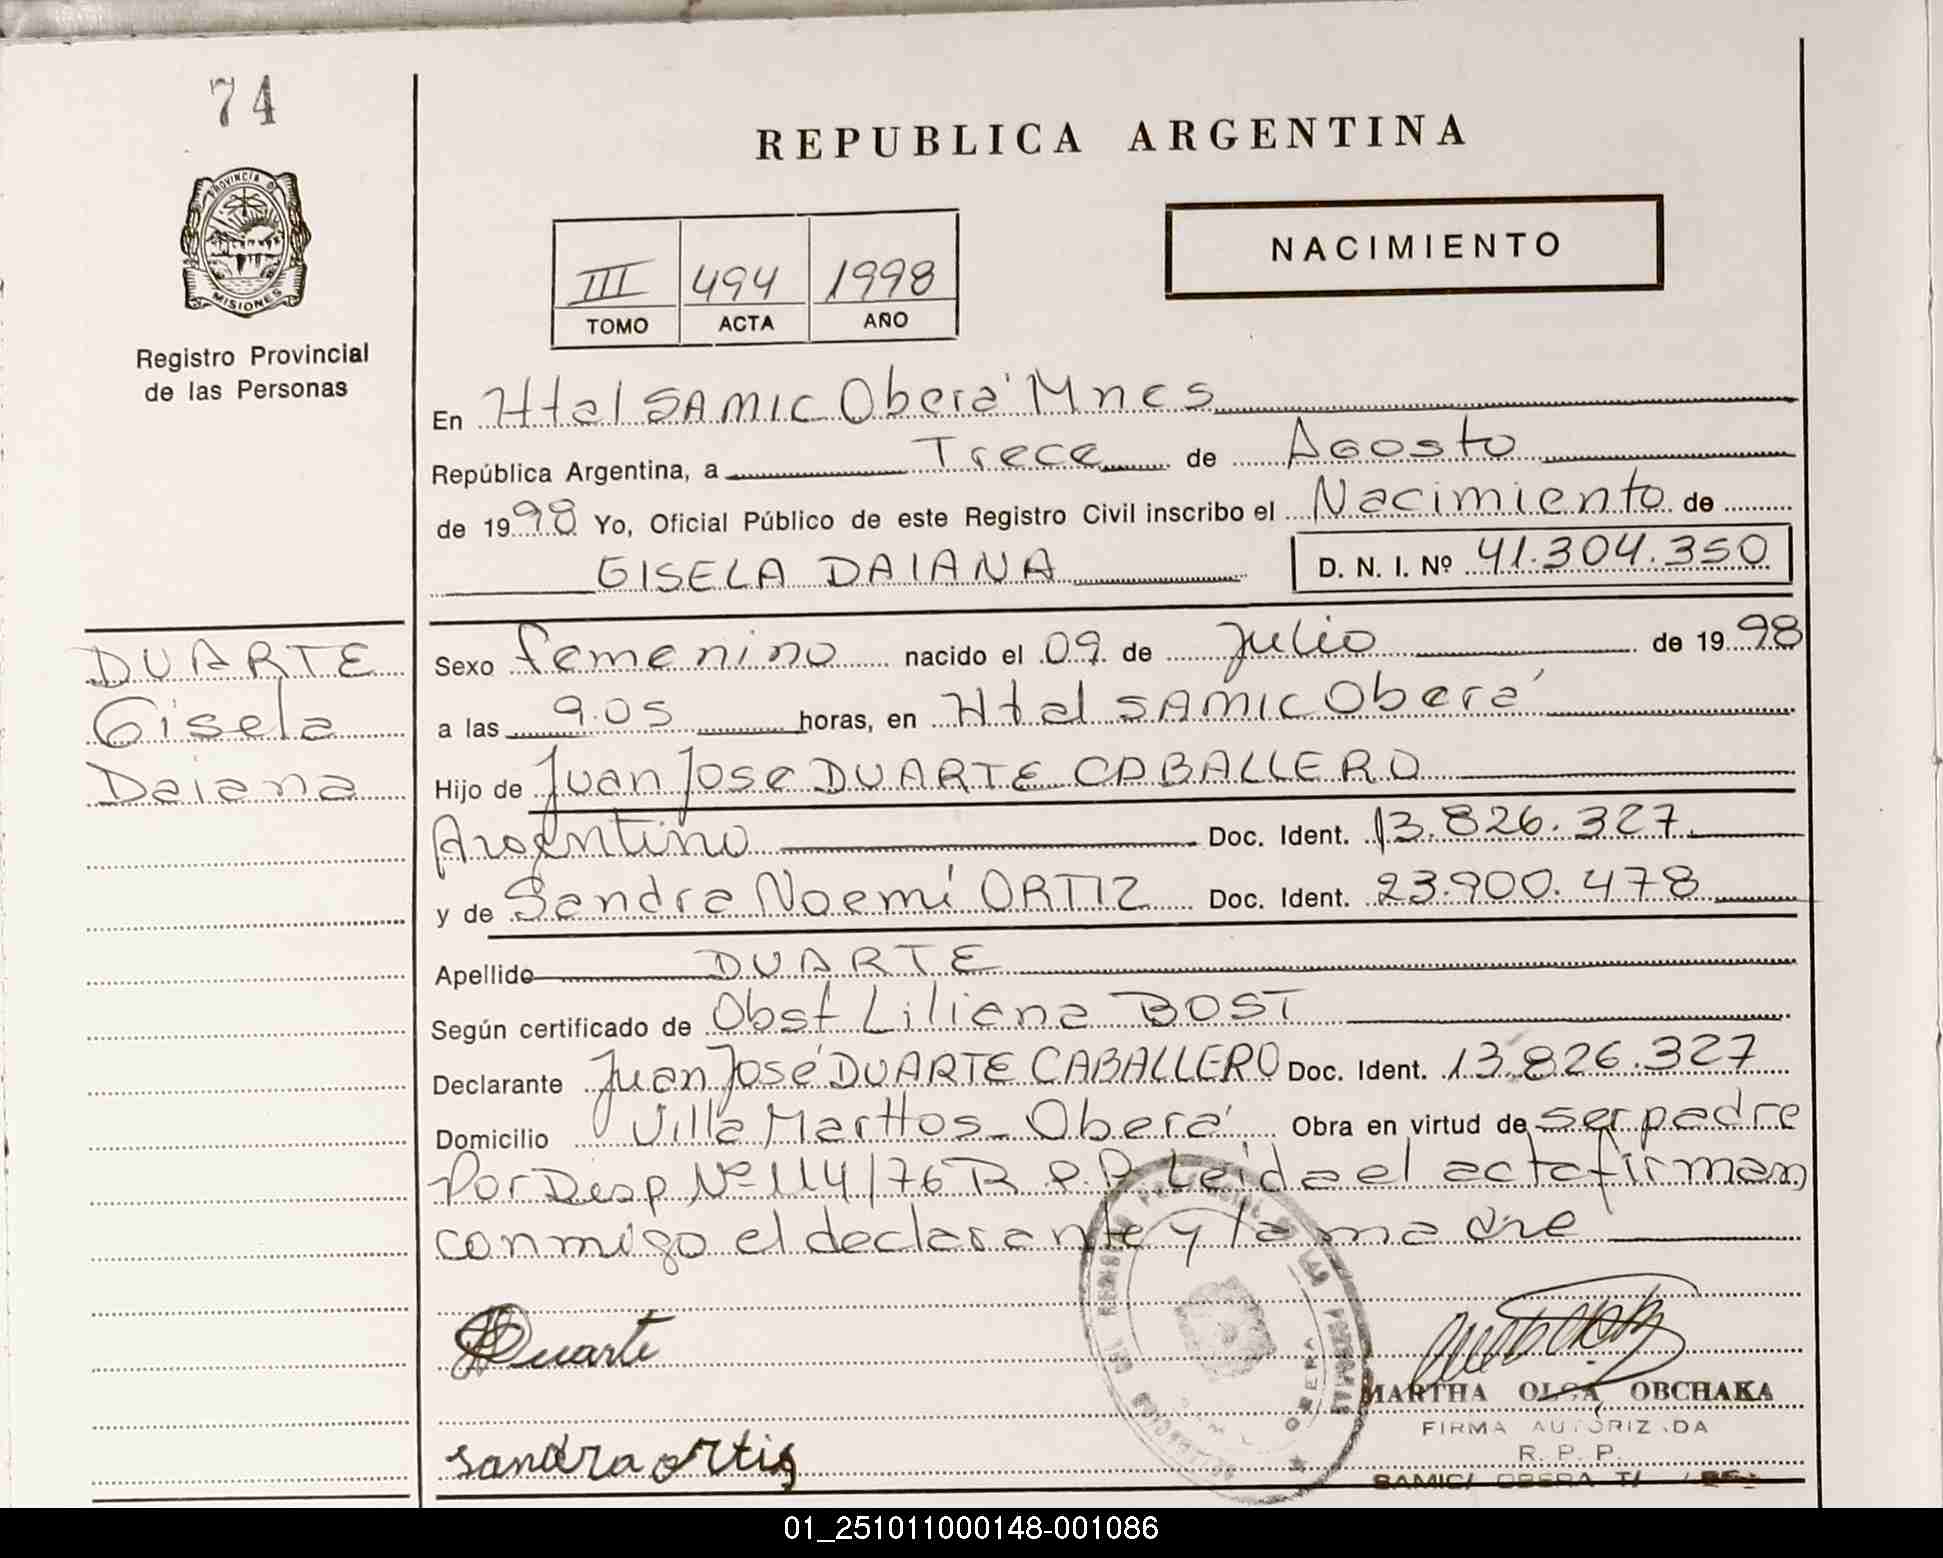 74
PROVINCIA DE
MISIONES
Registro Provincial
de las Personas
REPUBLICA ARGENTINA
NACIMIENTO
III 494 1998
TOMO ACTA AÑO
En Htal SAMIC Oberá Mnes
República Argentina, a Trece de Agosto
de 1998 Yo, Oficial Público de este Registro Civil inscribo el Nacimiento de
GISELA DAIANA D. N. I. Nº 41.304.350
DUARTE
Gisela
Daiana
Sexo femenino nacido el 09 de Julio de 1998
a las 9.05 horas, en Htal SAMIC Oberá
Hijo de Juan Jose DUARTE CABALLERO
Argentino Doc. Ident. 13.826.327
y de Sandra Noemí ORTIZ Doc. Ident. 23.900.478
Apellido DUARTE
Según certificado de Obst Liliana BOST
Declarante Juan José DUARTE CABALLERO Doc. Ident. 13.826.327
Domicilio Villa Marttos - Oberá Obra en virtud de ser padre
Por Disp Nº 114/76 R.P.P. Leida el acta firman
conmigo el declarante y la madre
Duarte
MARTHA OLGA OBCHAKA
FIRMA AUTORIZADA
R. P. P.
sandra ortis
SAMIC OBERA
OBERA
01_251011000148-001086